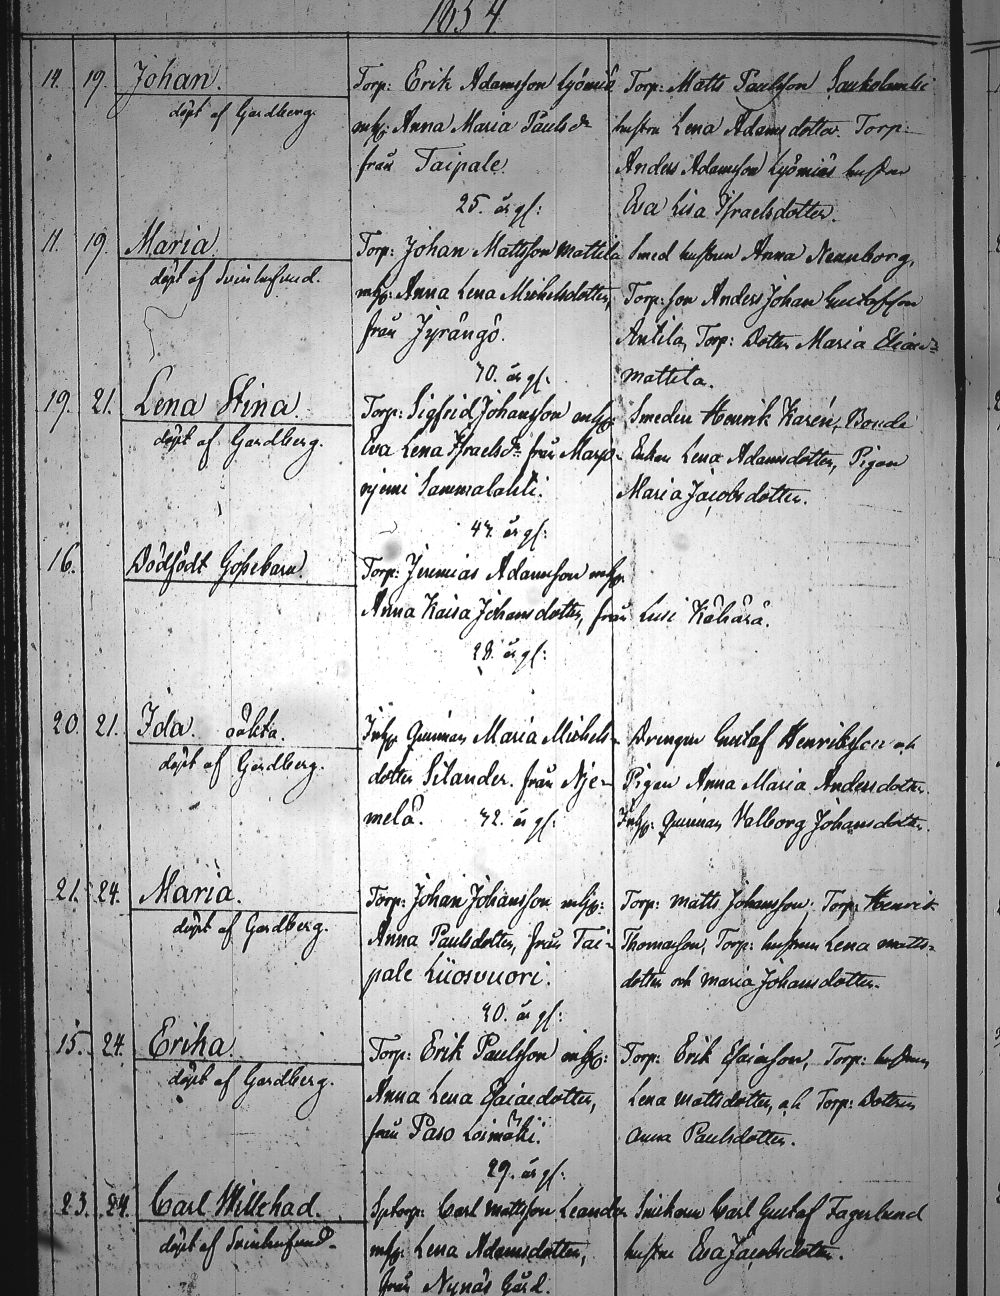 1854.
14. 19. Johan.
döpt af Gardberg.
Torp: Erik Adamsson Lyömiö
mhg: Anna Maria Paulsdr
från Taipale.
25. år gl:
Torp: Matts Paulsson
hustru Lena Adamsdotter. Torp:
Anders Adamsson Lyömiös hustru
Eva Lisa Israelsdotter.
11. 19. Maria.
döpt af Svinhufvud.
Torp: Johan Mattsson Mattila
mhg: Anna Lena Michelsdotter,
från Jyrängö.
40. år gl:
Smed hustrun Anna Nennborg,
Torp: son Anders Johan Gustafsson
Antila, Torp: Dotter Maria
Mattila.
19. 21. Lena Stina
döpt af Gardberg.
Torp: Sigfrid Johansson mhg:
Eva Lena Israelsdr från Marjo-
njemi Sammalahti.
47. år gl:
Smeden Henrik Karén, Bonde
Enkan Lena Adamsdotter, Pigan
Maria Jacobsdotter.
16. Dödfödt Gossebarn.
Torp: Jeremias Adamsson mhg:
Anna Kaisa Johansdotter, från Lusi Kähärä.
28. år gl:
20. 21. Ida. oäkta.
döpt af Gardberg.
Inhs: Qvinnan Maria Michels-
dotter Silander. från Nje-
melä. 42. år gl:
Drengen Gustaf Henriksson och
Pigan Anna Maria Andersdotter.
Inhs: Qvinnan Valborg Johansdotter.
21. 24. Maria.
döpt af Gardberg.
Torp: Johan Johansson mhg:
Anna Paulsdotter, från Tai-
pale Liiosvuori.
40. år gl:
Torp: Matts Johansson, Torp: Henrik
Thomasson, Torp: hustrun Lena Matts-
dotter och Maria Johansdotter.
15. 24. Erika.
döpt af Gardberg.
Torp: Erik Paulsson mhg:
Anna Lena Esaiaedotter,
från Paso Loimäki.
29. år gl:
Torp: Erik Esaiasson, Torp: hustrun
Lena Mattsdotter, och Torp: Dottren
Anna Paulsdotter.
23. 24. Carl Willehad.
döpt af Svinhufvud.
Sptorp: Carl Mattsson Leander
mhg: Lena Adamsdotter,
från Nynäs Gård.
Snikaren Carl Gustaf Fagerlund
hustru Eva Jacobsdotter.